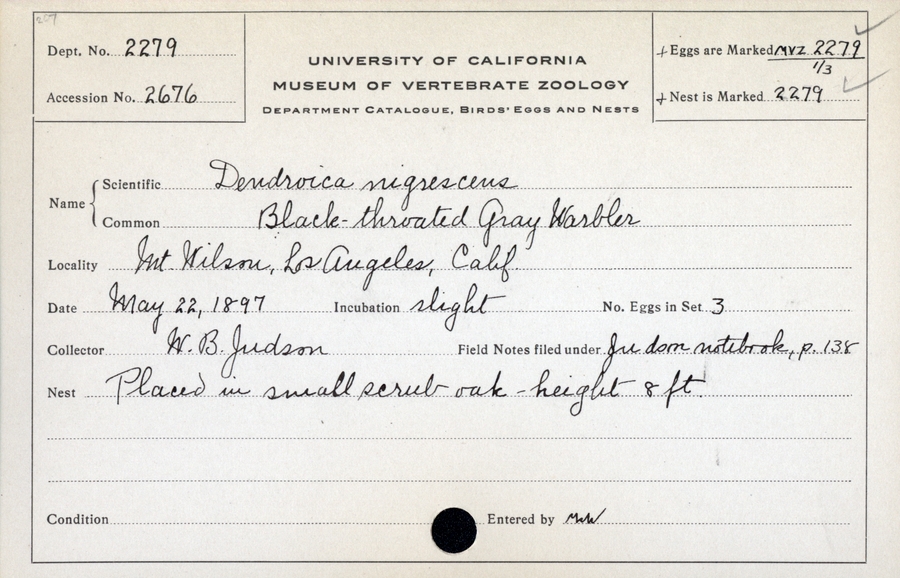 207
Dept. No. 2279
Accession No. 2676
UNIVERSITY OF CALIFORNIA
MUSEUM OF VERTEBRATE ZOOLOGY
DEPARTMENT CATALOGUE, BIRDS' EGGS AND NESTS
+ Eggs are Marked MVZ 2279
1/3
+ Nest is Marked 2279
Name
Scientific Dendroica nigrescens
Common Black-throated Gray Warbler
Locality Mt. Wilson, Los Angeles, Calif
Date May 22, 1897 Incubation slight No. Eggs in Set 3
Collector W. B. Judson Field Notes filed under Judson notebook, p. 138
Nest Placed in small scrub oak - height 8 ft.
Condition Entered by